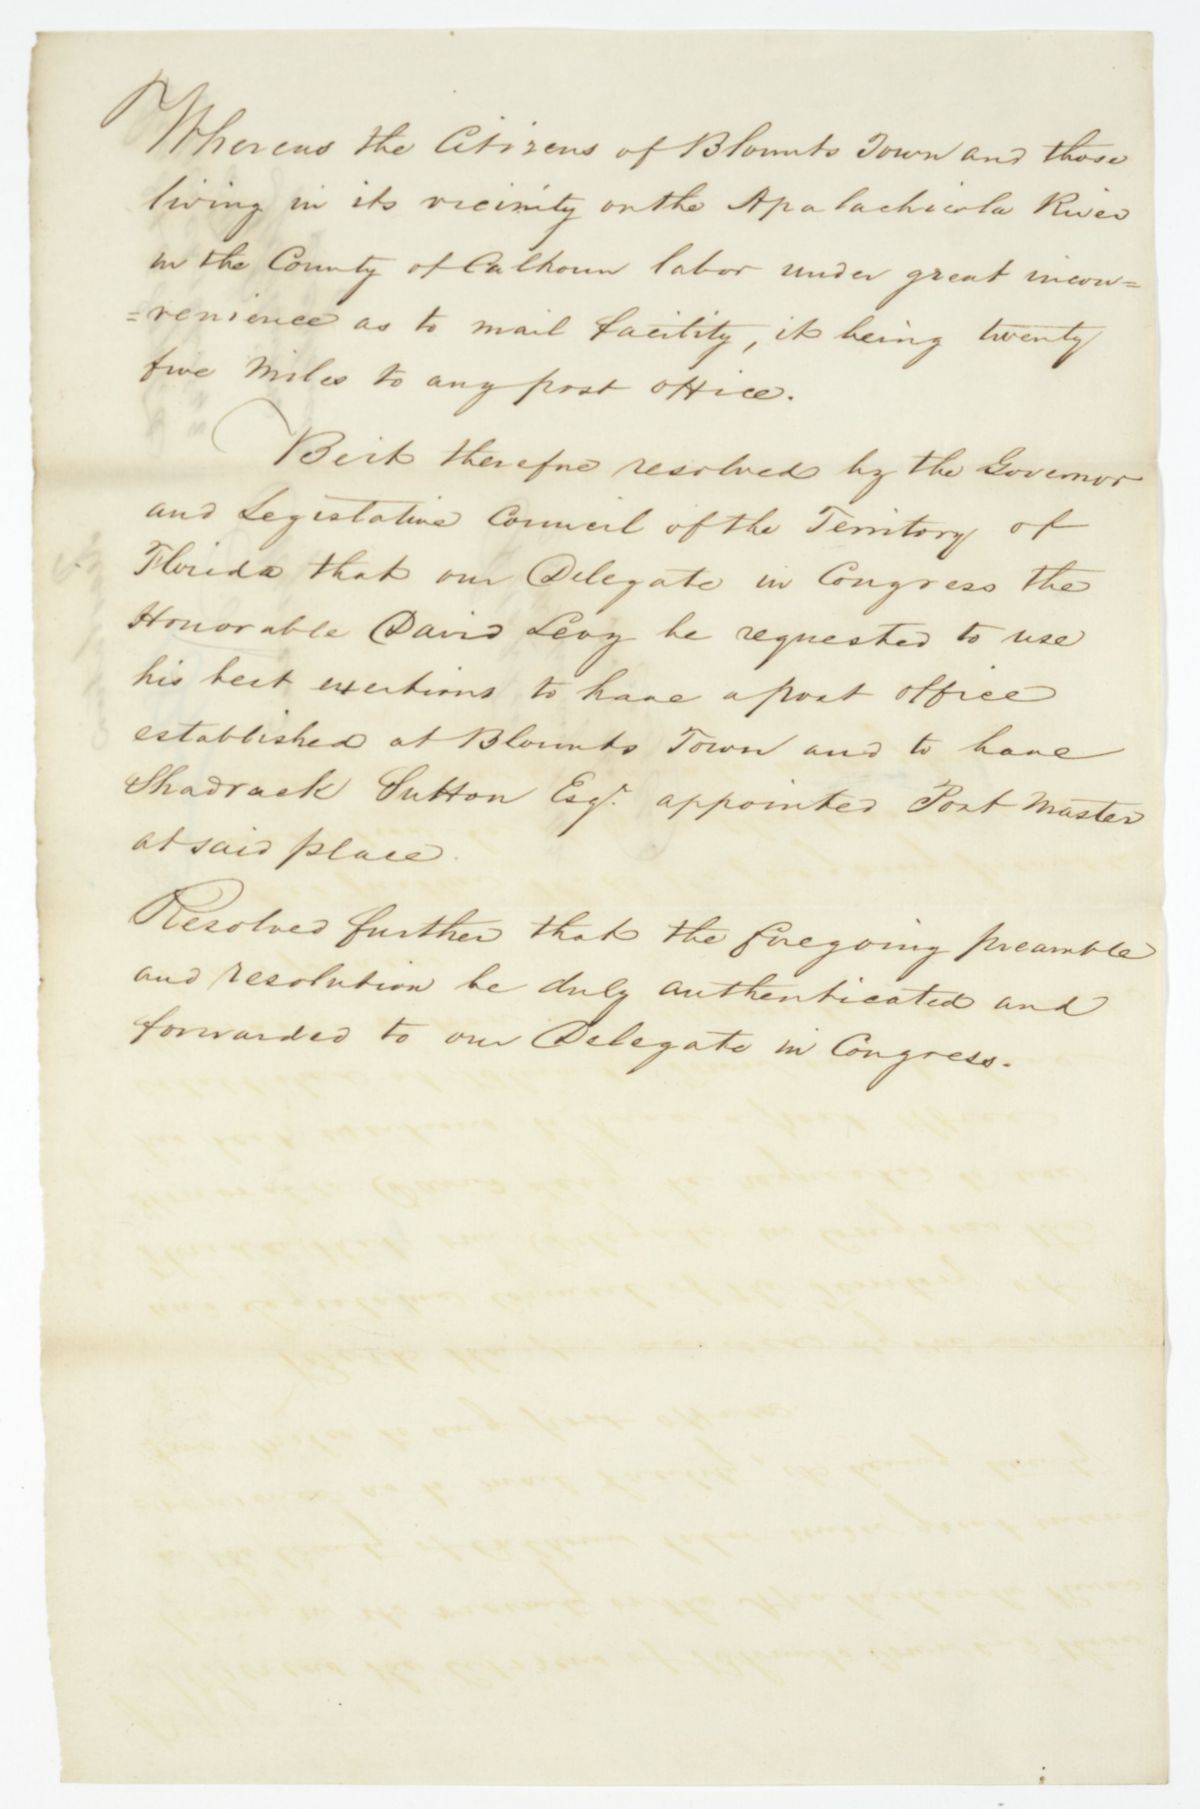 Whereas the Citizens of Blounts Town and those
living in its vicinity on the Apalachicola River
in the County of Calhoun labor under great incon=
=venience as to mail facility, it being twenty
five Miles to any post office.
Be it therefore resolved by the Governor
and Legislative Council of the Territory of
Florida that our Delegate in Congress the
Honorable David Levy be requested to use
his best exertions to have a post office
established at Blounts Town and to have
Shadrack Sutton Esqr. appointed Post Master
at said place.
Resolved further that the foregoing preamble
and resolution be duly authenticated and
forwarded to our Delegate in Congress.